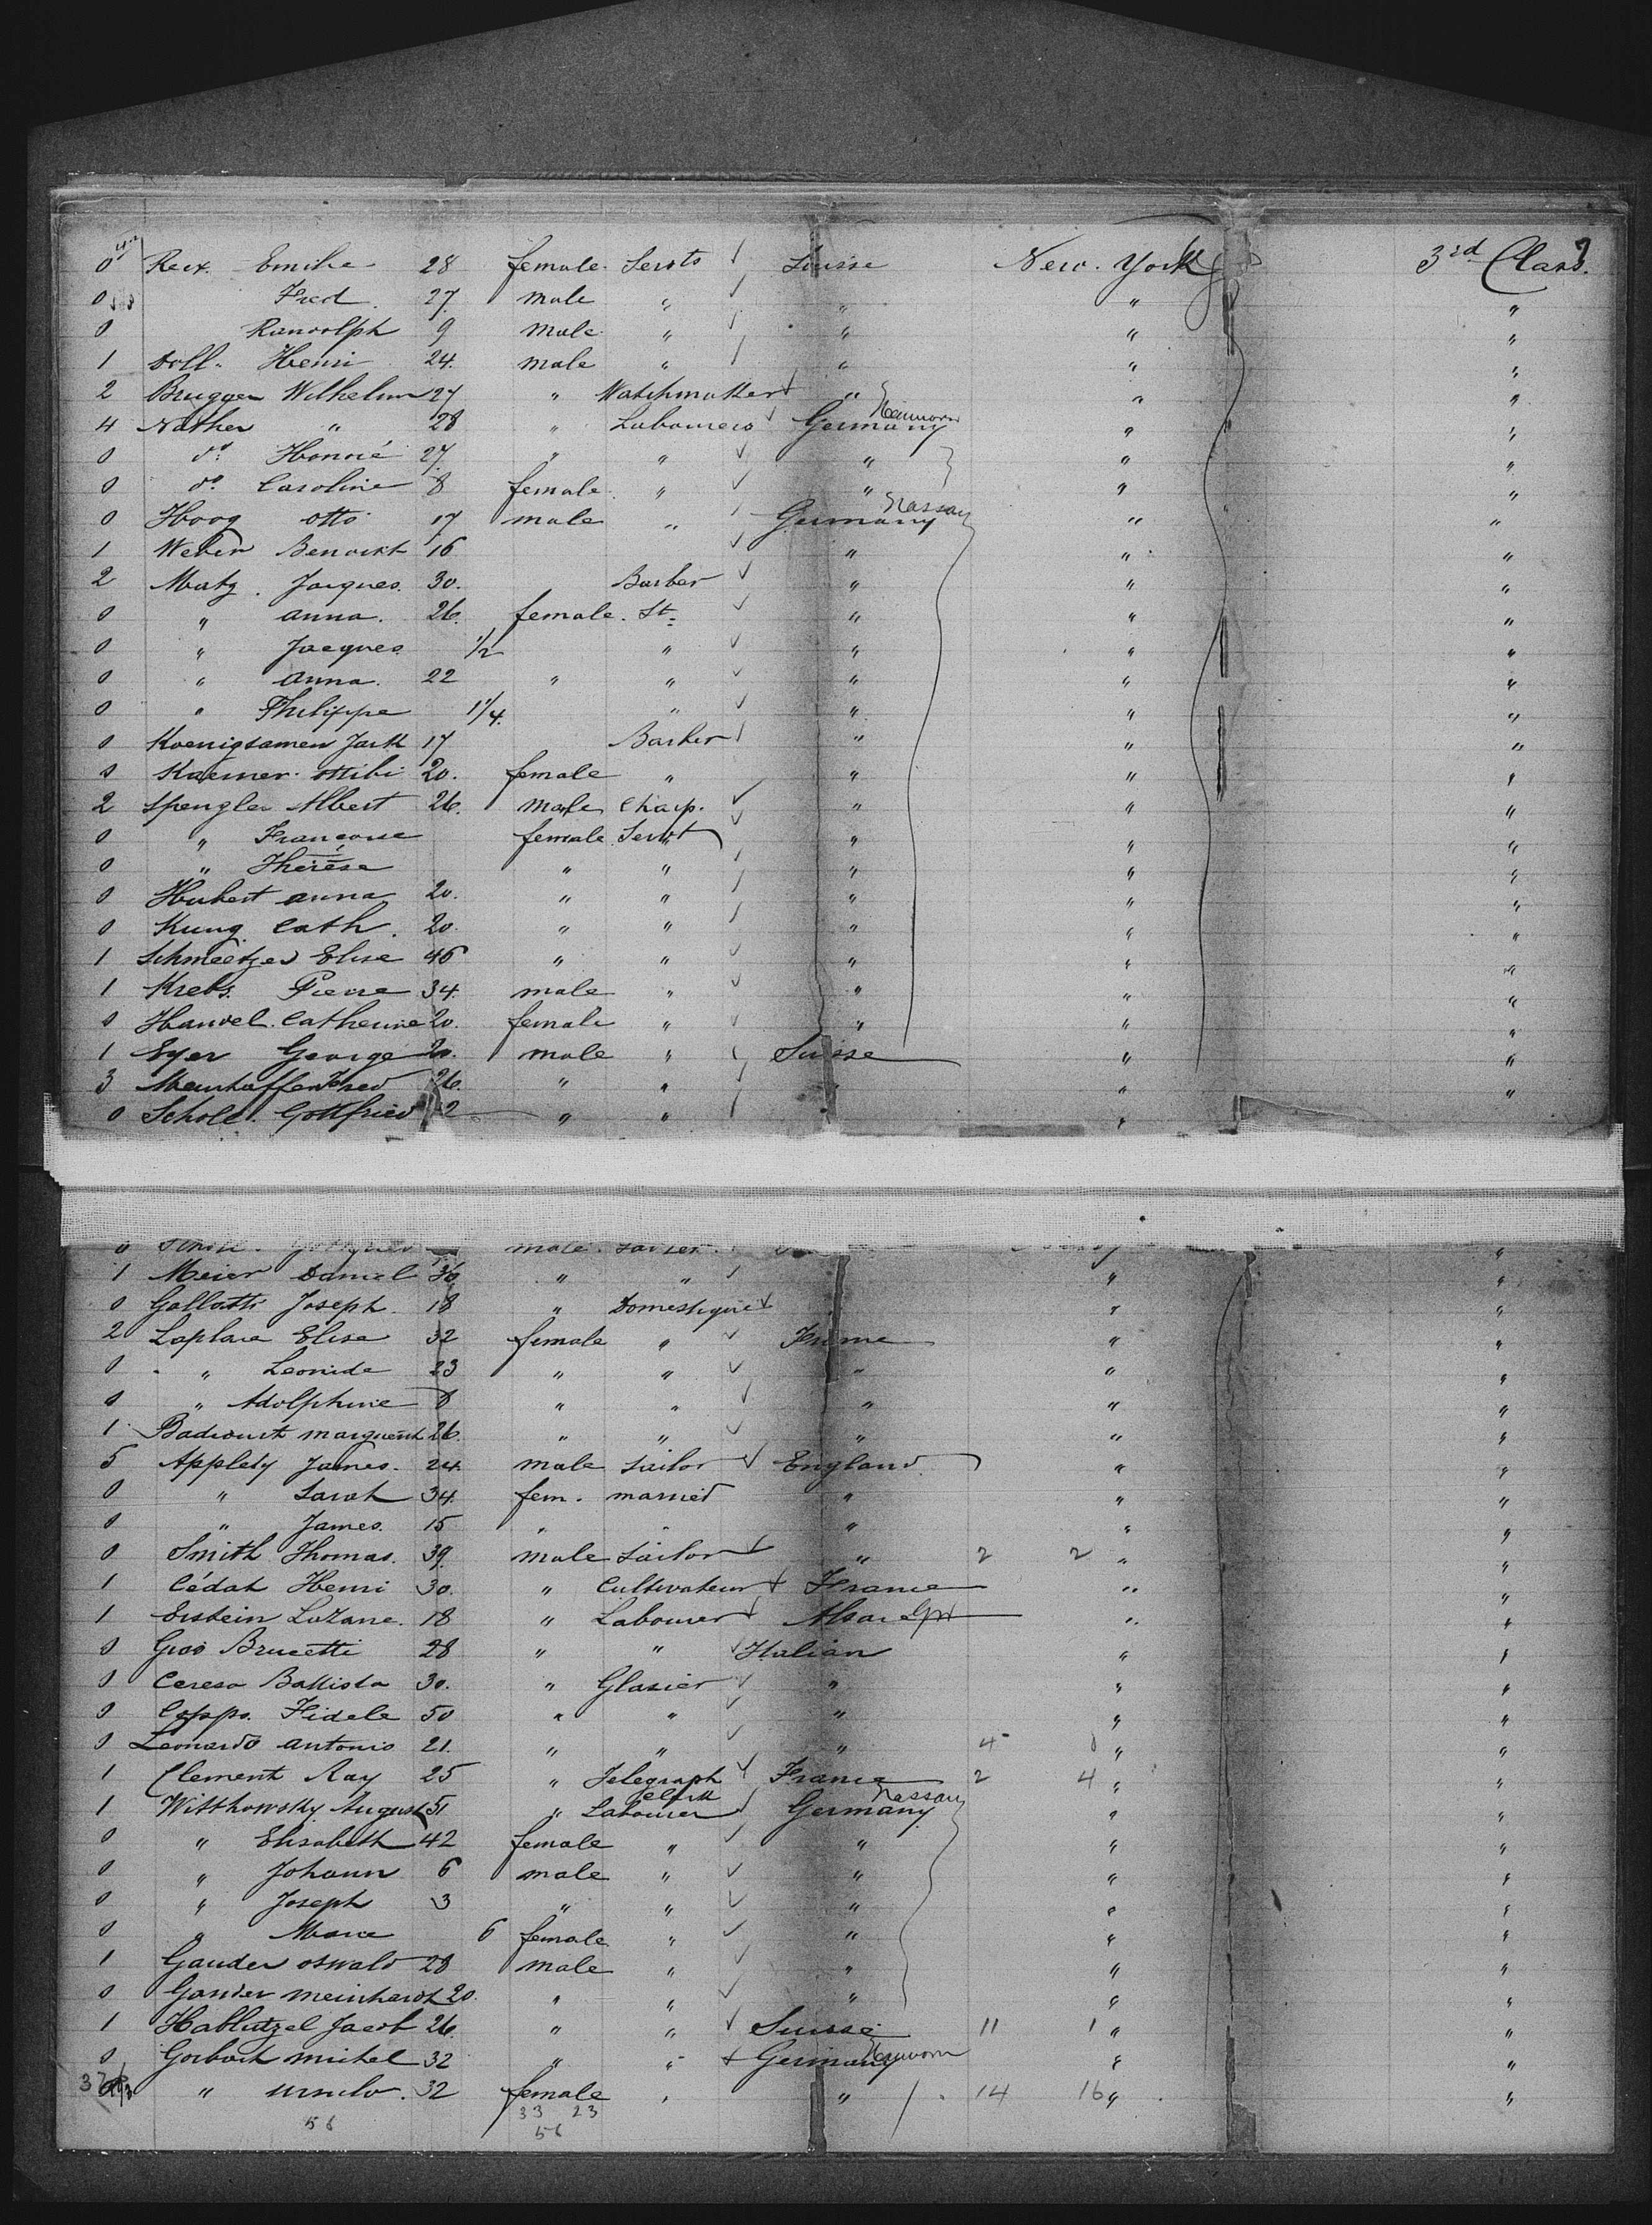 0 Reix. Emilie 28 female. Servts Suisse New. York 3rd Class.
0 Fred. 27. male " " " "
0 Randolph 9 male " " " "
1 Doll. Henri 24. male " " " "
2 Bruggen Wilhelm 27 " Watchmaker " " "
4 Nather " 28 " Labourers Germany Hannover " "
0 do Honoré 27. " " " " "
0 do Caroline 8 female. " " " "
0 Hoog Otto 17 male " Germany Nassau " "
1 Weber Benoikt 16 " " "
2 Matz. Jacques. 30. Barber " " "
0 " anna. 26. female. St. " " "
0 " Jacques 1/2 " " " "
0 " anna. 22 " " " " "
0 " Philippe 1 1/4. " " " "
0 Koenigsamen Jark 17 Barber " " "
0 Kaemer. Ottibi 20. female " " " "
2 Spengler Albert 26. male Charp. " " "
0 " Francoise female Servt " " "
0 " Thérèse " " " " "
0 Hubert anna 20. " " " " "
0 Kung Cath. 20 " " " " "
1 Schmeetzer Elise 46 " " " " "
1 Krebs. Pierre 34. male " " " "
0 Handel. Catherine 20. female " " " "
1 Eyer George 20. male " Suisse " "
3 Manhaffen Fred 26. " " " "
0 Scholl. Gottfried 42 " " "
0 male. "
1 Meier Daniel 36 " " " "
0 Gallatti Joseph. 18 " Domestique " "
2 Laplace Elisa 32 female " France " "
0 " Leonide 23 " " " " "
0 " Adolphine 8 " " " " "
1 Badicourt marguerit 26. " " " " "
5 Appleby James. 24. male Tailor England. " "
0 " Sarah 34. fem. married " " "
0 " James. 15 " " " " "
0 Smith Thomas. 39. male Tailor " 2 2 " "
1 Cédat Henri 30. " Cultivateur France " "
1 Erstein Lazare. 18 " Labourer Alsace Gr " "
0 Gioo Brucetti 28 " " Italian " "
0 Ceresa Battista 30. " Glasier " " "
0 Coppo. Fidele 50 " " " " "
0 Leonardo antonio 21. " " " 4 " "
1 Clement Ray 25 " Telegraph clerk France 2 4 " "
1 Witthowsky August 51 " Labourer Germany Nassau " "
0 " Elisabeth 42 female " " " "
0 " Johann 6 male " " " "
0 " Joseph 3 " " " " "
0 " Marie 6 female " " " "
1 Gander oswald 28 male " " " "
0 Gander meinhardt 20. " " " " "
1 Hablutzel Jacob 26. " " Suisse 11 1 " "
0 Gorbach michel 32 " " Germany Hannover " "
" Ursula. 32 female " " 14 16 " "
33 23
56 56